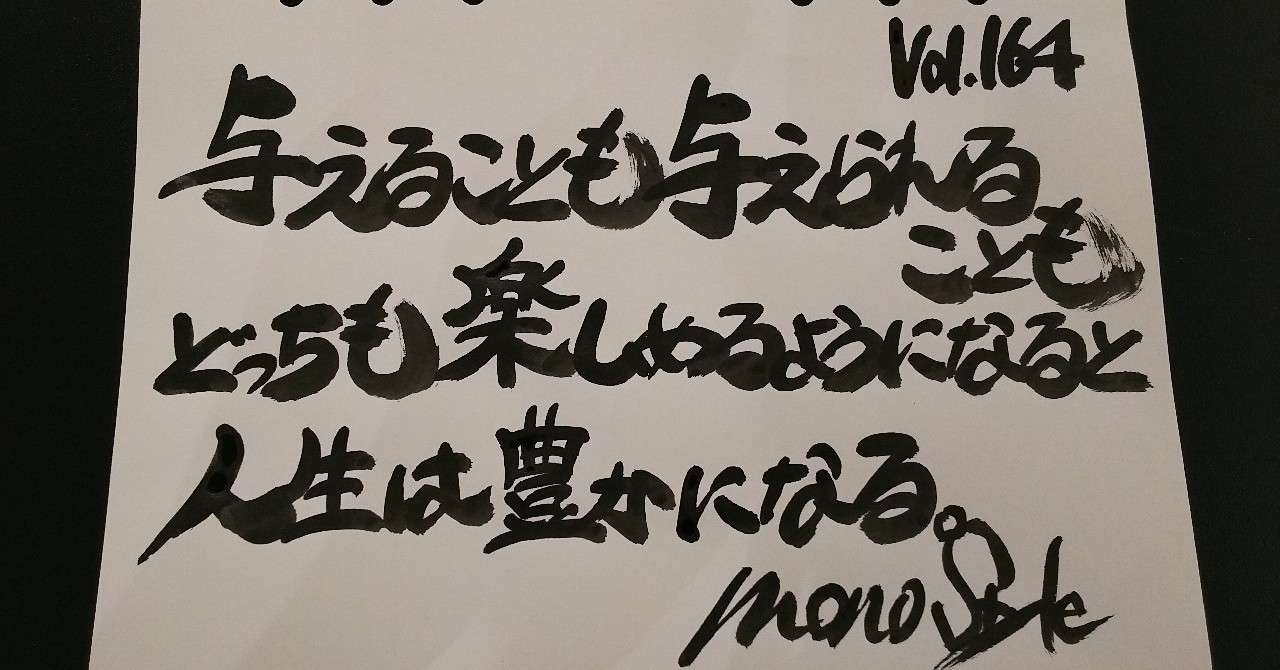 Vol.164
与えることも与えられる
ことも
どっちも楽しめるようになると
人生は豊かになる。
mono Style